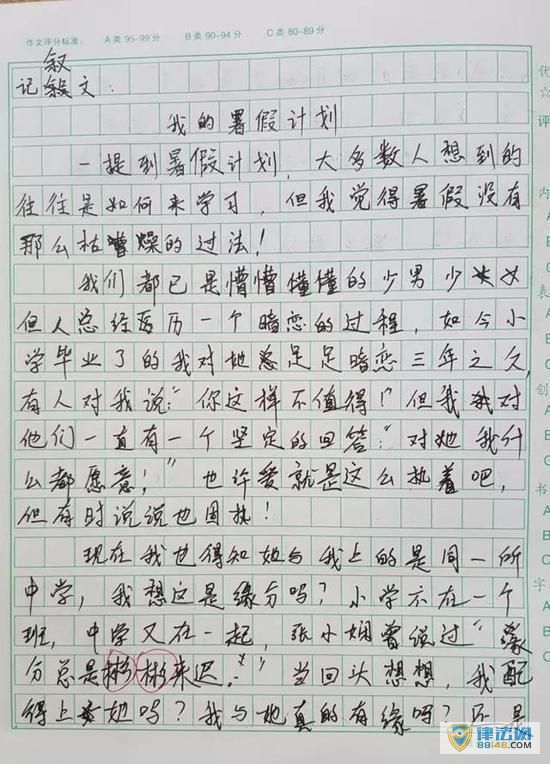 作文评分标准： A类 95-99分 B类 90-94分 C类 80-89分
优
☆
评
内
A
B
C
表
A
创
A
书
A
B
C
字
A
B
叙
记 文：
我的暑假计划
一提到暑假计划，大多数人想到的
往往是如何来学习，但我觉得暑假没有
那么枯燥的过法！
我们都已是懵懵懂懂的少男少女
但人总经历一个暗恋的过程，如今小
学毕业了的我对她足足暗恋三年之久，
有人对我说：“你这样不值得！”但我对
他们一直有一个坚定的回答：“对她我什
么都愿意！”也许爱就是这么执着吧，
但有时说说也固执！
现在我也得知她与我上的是同一所
中学，我想这是缘分吗？小学不在一个
班，中学又在一起，张小娴曾说过“缘
分总是彬彬来迟。”当回头想想，我配
得上她吗？我与她真的有缘吗？还是
律法网
88148.com